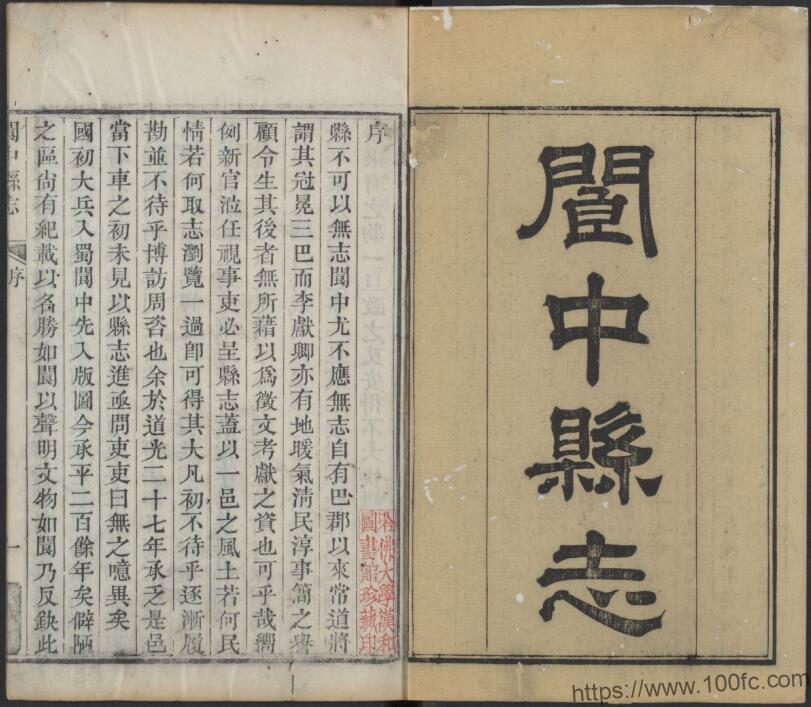 閬中縣志
序
縣不可以無志閬中尤不應無志自有巴郡以來常道將
謂其冠冕三巴而李獻卿亦有地暖氣清民淳事簡之譽
顧令生其後者無所藉以爲徵文考獻之資也可乎哉嚮
例新官涖任視事吏必呈縣志蓋以一邑之風土若何民
情若何取志瀏覽一過卽可得其大凡初不待乎逐漸履
勘並不待乎博訪周咨也余於道光二十七年承乏是邑
當下車之初未見以縣志進亟問吏吏曰無之噫異矣
國初大兵入蜀閬中先入版圖今承平二百餘年矣僻陋
之區尙有紀載以名勝如閬以聲明文物如閬乃反缺此
閬中縣志
序
一
哈佛大學漢和
圖書館珍藏印
https://www.100fc.com